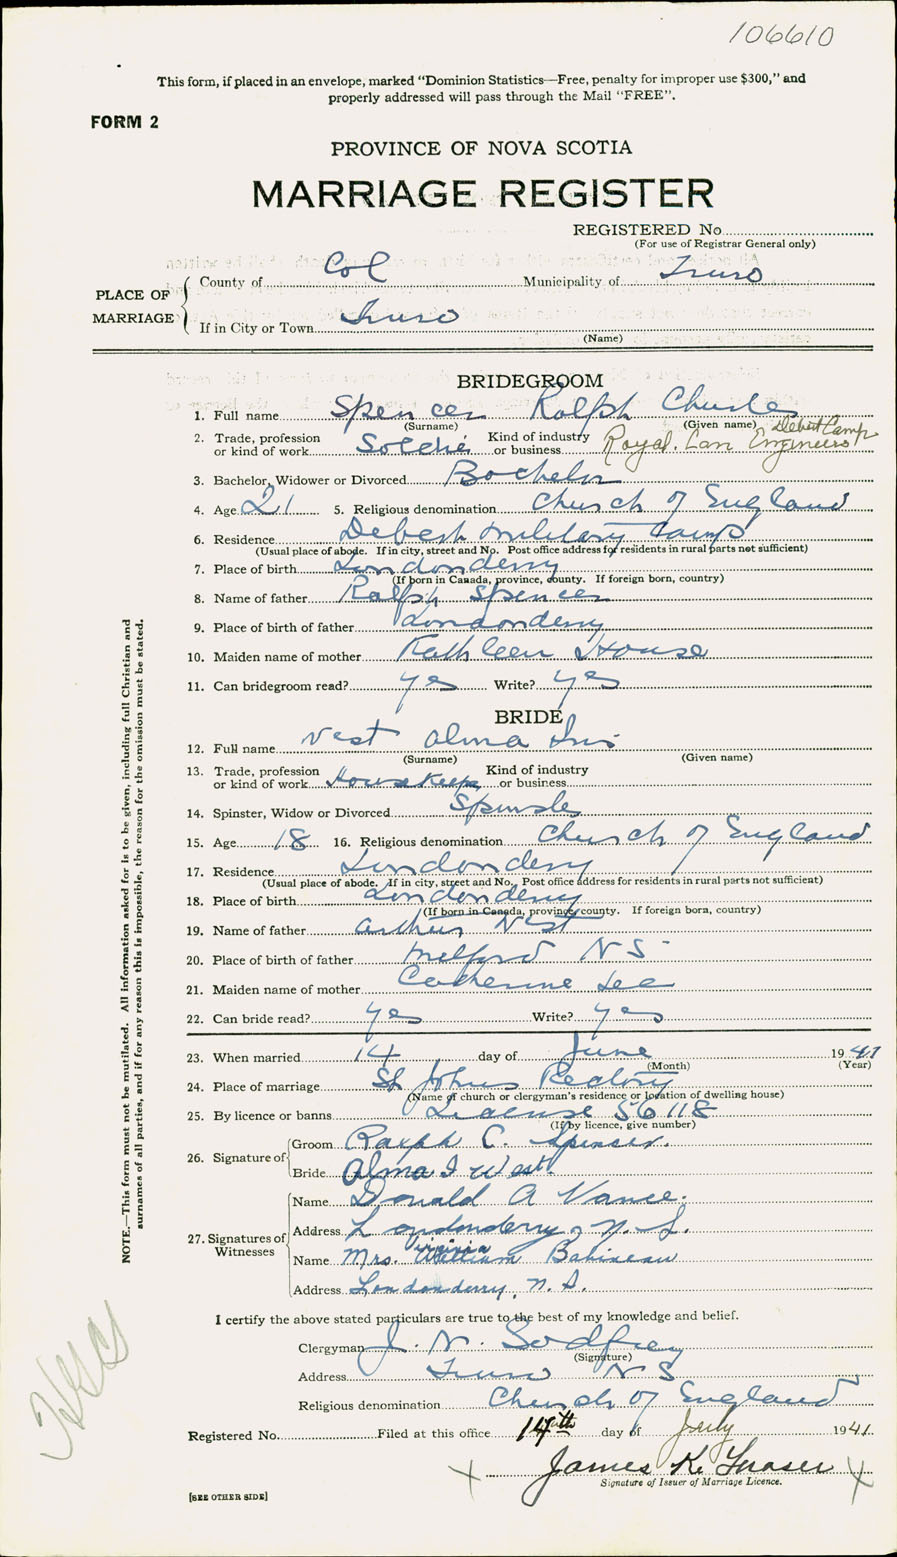 106610
This form, if placed in an envelope, marked "Dominion Statistics—Free, penalty for improper use $300," and
properly addressed will pass through the Mail "FREE".
FORM 2
PROVINCE OF NOVA SCOTIA
MARRIAGE REGISTER
REGISTERED No
(For use of Registrar General only)
PLACE OF MARRIAGE
County of Col Municipality of Truro
If in City or Town Truro
(Name)
BRIDEGROOM
1. Full name Spencer Ralph Charles
(Surname) (Given name)
2. Trade, profession or kind of work Soldier Kind of industry or business Royal. Can Engineers Debert Camp
3. Bachelor, Widower or Divorced Bachelor
4. Age 21 5. Religious denomination Church of England
6. Residence Debert Military Camp
(Usual place of abode. If in city, street and No. Post office address for residents in rural parts not sufficient)
7. Place of birth Londonderry
(If born in Canada, province, county. If foreign born, country)
8. Name of father Ralph Spencer
9. Place of birth of father Londonderry
10. Maiden name of mother Kathleen House
11. Can bridegroom read? yes Write? yes
BRIDE
12. Full name West Alma Iris
(Surname) (Given name)
13. Trade, profession or kind of work Housekeeper Kind of industry or business
14. Spinster, Widow or Divorced Spinster
15. Age 18 16. Religious denomination Church of England
17. Residence Londonderry
(Usual place of abode. If in city, street and No. Post office address for residents in rural parts not sufficient)
18. Place of birth Londonderry
(If born in Canada, province, county. If foreign born, country)
19. Name of father Arthur West
20. Place of birth of father Milford N S
21. Maiden name of mother Catherine Lee
22. Can bride read? yes Write? yes
23. When married 14 day of June 1941
(Month) (Year)
24. Place of marriage St Johns Rectory
(Name of church or clergyman's residence or location of dwelling house)
25. By licence or banns License 56118
(If by licence, give number)
26. Signature of Groom Ralph C. Spencer.
Bride Alma I West.
27. Signatures of Witnesses
Name Donald A Vance.
Address Londonderry, N. S.
Name Mrs. William Virginia Babineau
Address Londonderry, N. S.
I certify the above stated particulars are true to the best of my knowledge and belief.
Clergyman J. N. Godfrey
(Signature)
Address Truro N S
Religious denomination Church of England
Registered No. Filed at this office 14th day of July 1941.
James K. Fraser
Signature of Issuer of Marriage Licence.
[SEE OTHER SIDE]
NOTE.—This form must not be mutilated. All information asked for is to be given, including full Christian and
surnames of all parties, and if for any reason this is impossible, the reason for the omission must be stated.